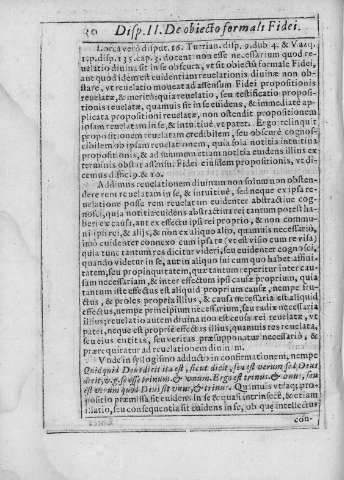 30 Disp. II. De obiecto formali Fidei.
Loca, vero disput. 16. Turrian. disp. 9. dub. 4. & Vazq.
1. p. disp. 135. cap. 3. docent non esse necessarium quod re-
uelatio diuina sit in se obscura, vt sit obiectũ formale Fidei,
aut quod idem est euidentiam reuelationis diuinæ non ob-
stare, vt reuelatio moueat ad assensum Fidei propositionis
reuelatæ, & merito: quia reuelatio, seu testificatio proposi-
tionis reuelatæ, quamuis sit in se euidens, & immediatè ap-
plicata propositioni reuelatæ, non ostendit propositionem
ipsam reuelatam in se, & intuitiuè, vt patet. Ergo relinquit
propositionem reuelatam credibilem, seu obscurè cognos-
cibilem ob ipsam reuelationem, quia sola notitia intuitiua
propositionis, & ad summum etiam notitia euidens illius ex
terminis obstat assensui Fidei eiusdem propositionis, vt di-
cemus diffic. 9. & 10.
Addimus reuelationem diuinam non solum non osten-
dere rem reuelatam in se, & intuitiuè, sed neque ex ipsa re-
uelatione posse rem reuelatam euidenter abstractiuè cog-
nosci, quia notitia euidens abstractiua rei tantum potest ha-
beri ex causa, aut ex effectu ipsi rei proprio, & non commu-
ni ipsi rei, & alijs, & non ex aliquo alio, quamuis necessariò,
imò euidenter connexo cum ipsa re (vt est visio cum re visa)
quia tunc tantum res dicitur videri, seu euidenter cognosci,
quando videtur in se, aut in aliquo sui cum quo habet affini-
tatem, seu propinquitatem, quæ tantum reperitur inter cau-
sam necessariam, & inter effectum ipsi causæ proprium, quia
tantum iste effectus est aliquid proprium causæ, nempe fru-
ctus, & proles propria illius, & causa necessaria est aliquid
effectus, nempe principium necessarium, seu radix necessaria
illius; reuelatio autem diuina non est causa rei reuelatæ, vt
patet, neque est propriè effectus illius, quamuis res reuelata,
seu eius entitas, seu veritas præsupponatur necessariò, &
prærequiratur ad reuelationem diuinam.
Vnde in syllogismo adducto in confirmationem, nempe
Quidquid Deus dicit ita est, sicut dicit, seu est verum sed Deus
dixit, v. g. se esse trinum, & vnum. Ergo est trinus, & vnus, seu
est verum quod Deus sit vnus, & trinus. Quamuis vtraq; pro-
positio præmissa sit euidens in se quasi intrinsecè, & etiam
illatio, seu consequentia sit euidens in se, ob quæ intellectus
con-